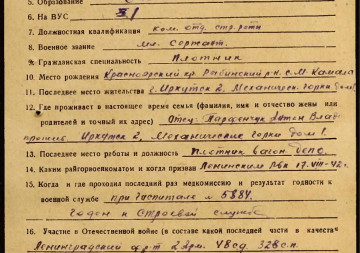 5. Образование
6. На ВУС 31
7. Должностная квалификация ком. отд. стр. роты
8. Военное звание мл. сержант.
9. Гражданская специальность Плотник
10. Место рождения Красноярский кр. Рыбинский р-н. с. М. Камала
11. Последнее место жительства г. Иркутск 2, Механическ. горки дом 1.
12. Где проживает в настоящее время семья (фамилия, имя и отчество жены или
родителей и точный их адрес) Отец Парфенчук Антон Влад
Иркутск 2, Механические горки дом 1.
13. Последнее место работы и должность Плотник вагон. депо.
14. Каким райгорвоенкоматом и когда призван Ленинским Рвк 17.VIII-42г.
15. Когда и где проходил последний раз медкомиссию и результат годности к
военной службе при госпитале № 5884.
Годен к строевой службе
16. Участие в Отечественной войне (в составе какой последней части в качестве
Ленинградский фр-т 2 Арм. 48 сд. 328 с.п.